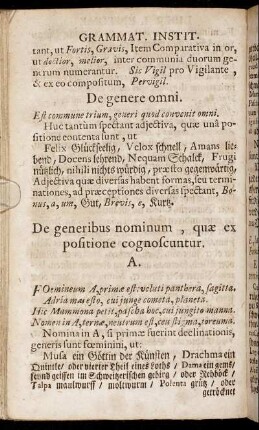 GRAMMAT. INSTIT.
tant, ut Fortis, Gravis, Item Comparativa in or,
ut doctior, melior, inter communia duorum ge-
nerum numerantur. Sic Vigil pro Vigilante,
& ex eo compositum, Pervigil.
De genere omni.
Est commune trium, generi quod convenit omni.
Huc tantùm spectant adjectiva, quæ unâ po-
sitione contenta sunt, ut
Felix Glückselig, Velox schnell, Amans lie-
bend, Docens lehrend, Nequam Schalck, Frugi
nützlich, nihili nichts würdig, præsto gegenwärtig,
Adjectiva quæ diversas habent formas, seu termi-
nationes, ad præceptiones diversas spectant, Bo-
nus, a, um, Gut, Brevis, e, Kurtz.
De generibus nominum, quæ ex
positione cognoscuntur.
A.
Foemineum A, primæ est: voluti panthera, sagitta.
Adria mas esto, cui junge cometa, planeta.
Hic Mammona petit, pascha hoc, cui jungito manna.
Nomen in A, ternæ, neutrum est, ceu stigma, toreuma.
Nomina in A, si primæ fuerint declinationis,
generis sunt fœminini, ut:
Musa ein Göttin der Künsten, Drachma ein
Quintle, oder vierter Theil eines Loths, Dama ein gems,
seynd geissen im Schweitzerischen gebirg, oder Rehböck,
Talpa maulwurff, moltwurm, Polenta grütz, oder
getröcknet